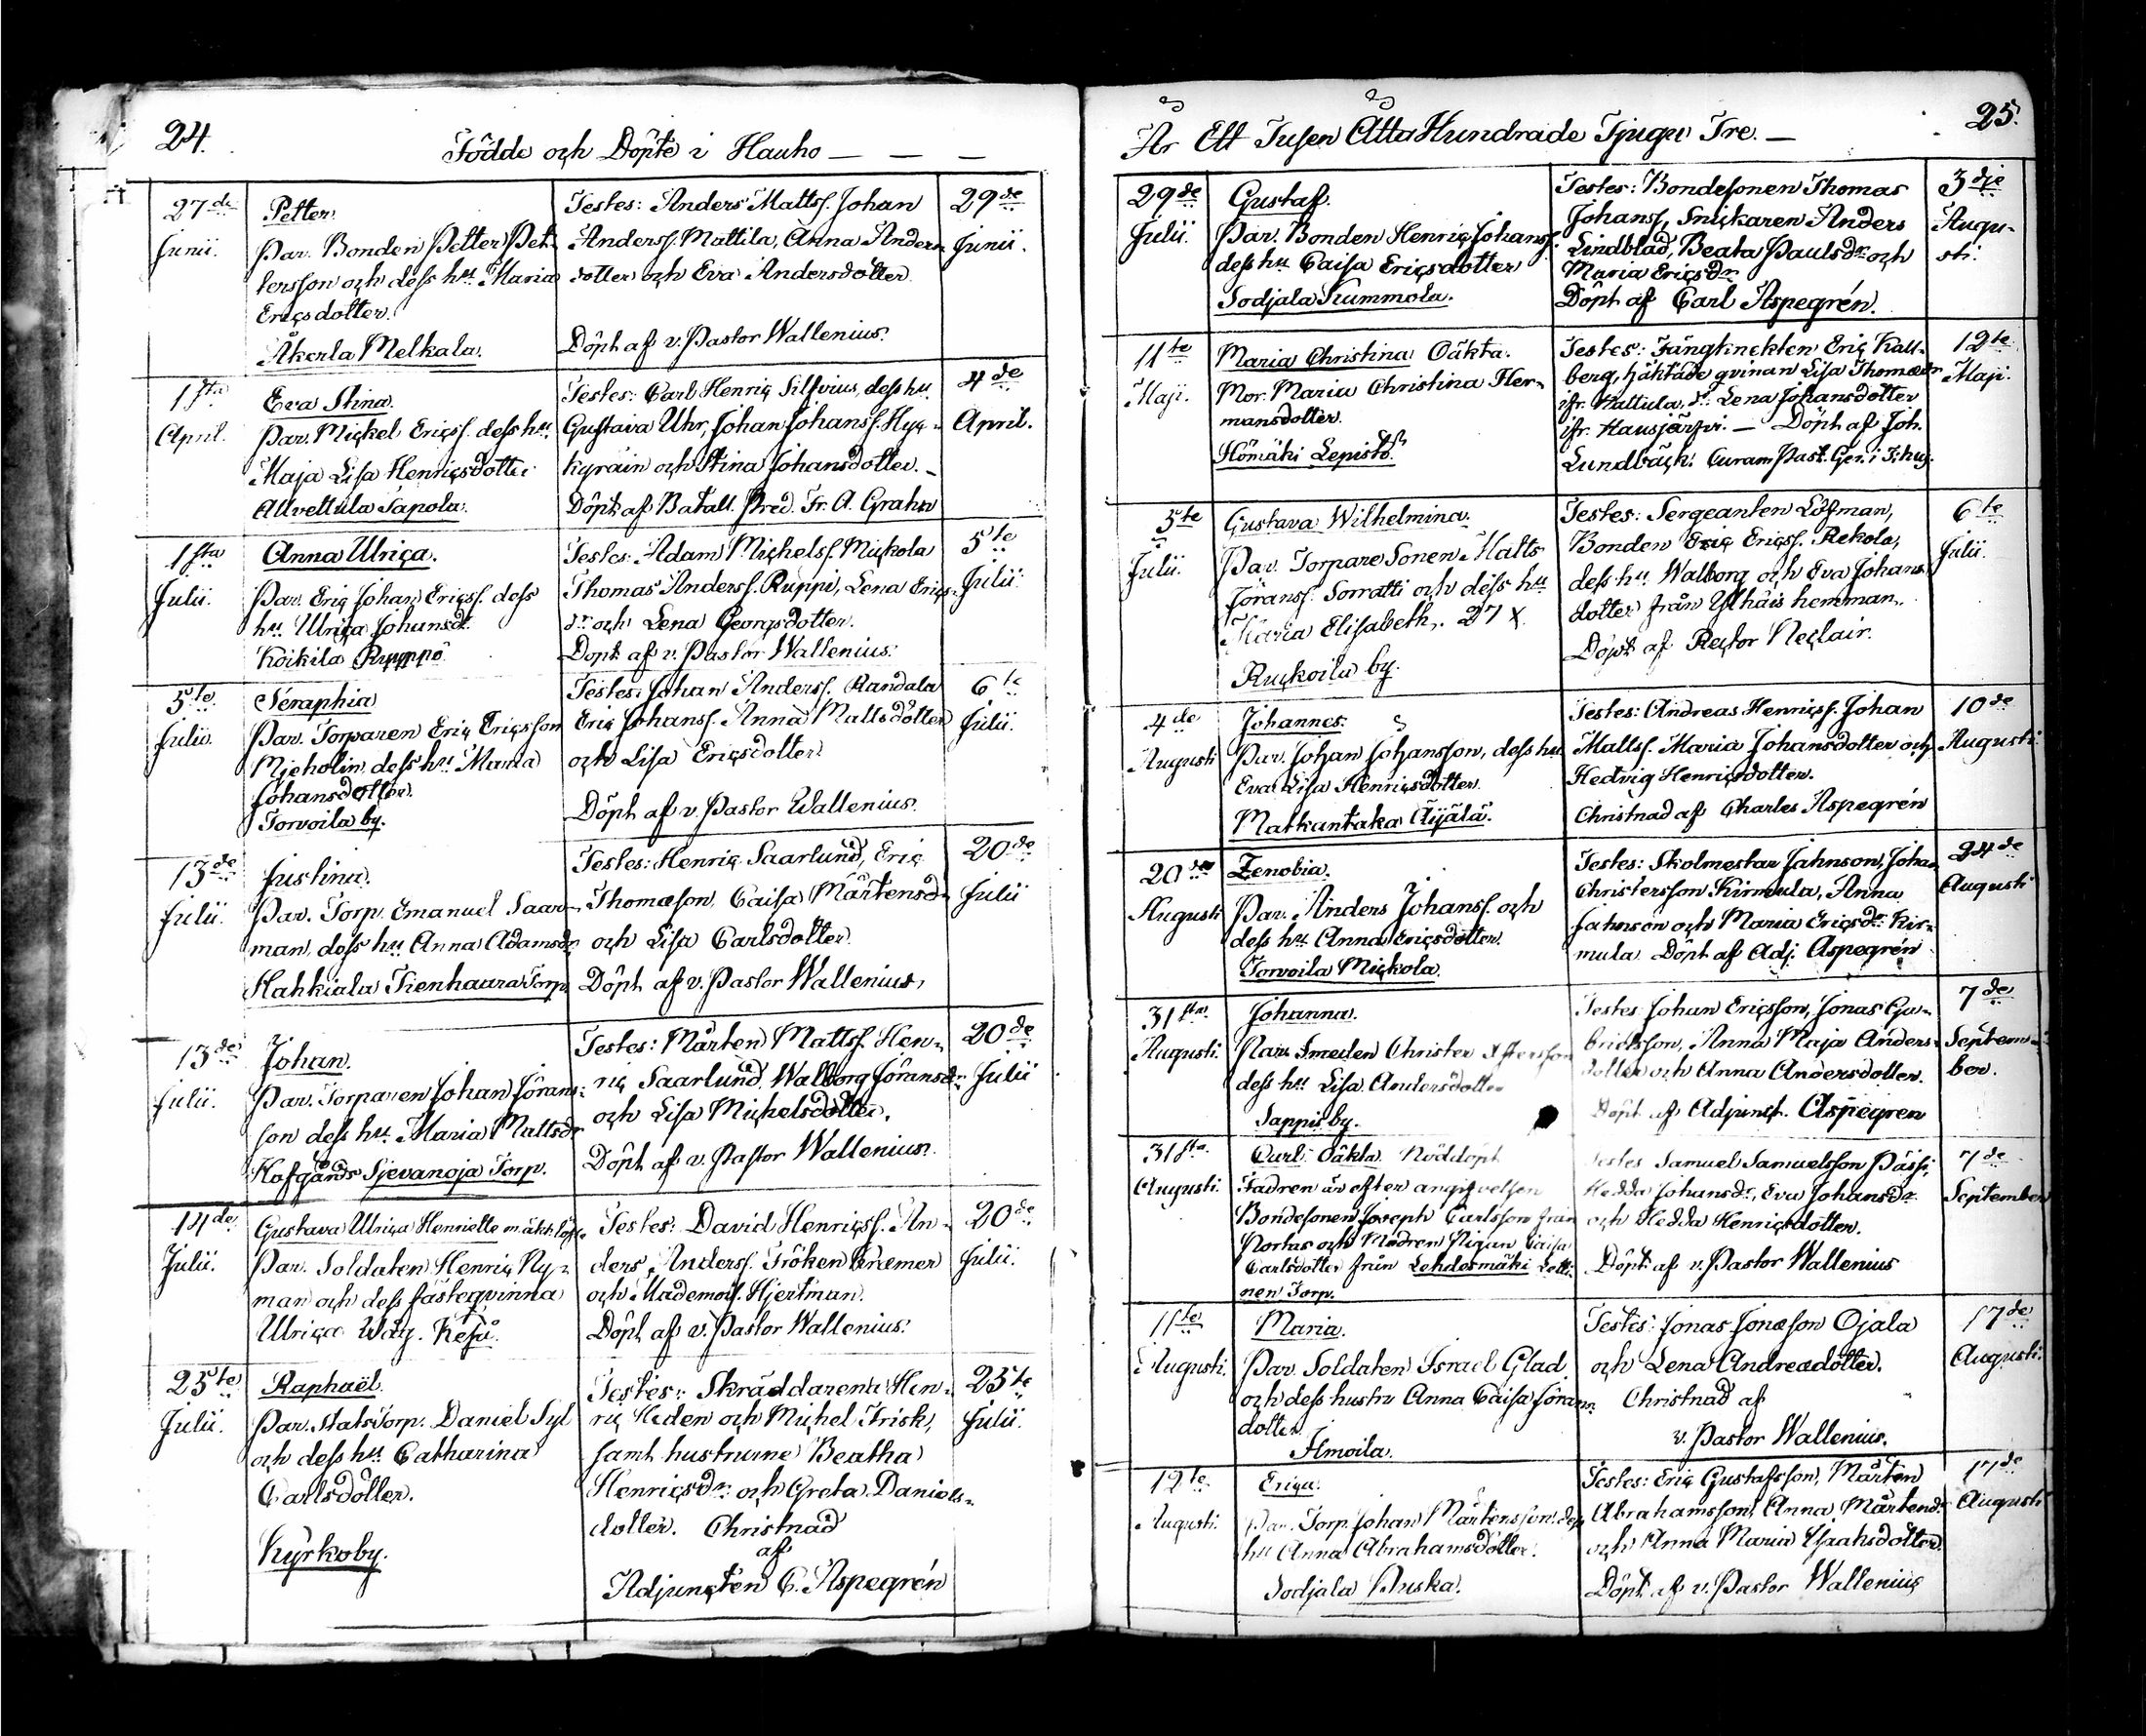 24.
Födde och Döpte i Hauho — — —
27de Junii.
Petter.
Par. Bonden Petter Pet-
tersson och dess hu. Maria
Ericsdotter.
Åkerla Melkala.
Testes: Anders Matts. Johan
Anders. Mattila, Anna Anders-
dotter och Eva Andersdotter.
Döpt af v. Pastor Wallenius.
29de Junii.
1sta April.
Eva Stina.
Par. Mickel Erics. dess hu.
Maja Lisa Henricsdotter
Alvettula Sapola.
Testes: Carl Henric Silfvius, dess hu.
Gustava Uhr, Johan Johanss. Hyc-
kyräin och Stina Johansdotter. —
Döpt af Batall. Pred. Fr. A. Grahn
4de April.
1sta Julii.
Anna Ulrica.
Par. Eric Johan Ericss. dess
hu. Ulrica Johansdr.
Koikila Ruppo
Testes: Adam Michelss. Mickola
Thomas Anderss. Ruppi, Lena Erics-
dr. och Lena Georgsdotter.
Döpt af v. Pastor Wallenius.
5te Julii.
5te Julii.
Seraphia
Par. Torparen Eric Ericsson
Mieholin dess hu. Maria
Johansdotter.
Torvoila by.
Testes: Johan Anderss. Randala
Eric Johanss. Anna Mattsdotter
och Lisa Ericsdotter
Döpt af v. Pastor Wallenius.
6te Julii.
13de Julii.
Justina.
Par. Torp. Emanuel Saar-
man, dess hu. Anna Adamsdr.
Hahkiala Kienhaara Torp.
Testes: Henric Saarlund, Eric
Thomæson, Caisa Mårtensdr
och Lisa Carlsdotter.
Döpt af v. Pastor Wallenius,
20de Julii
13de Julii.
Johan.
Par. Torparen Johan Jörans-
son dess hu. Maria Mattsdr
Hofgårds Sjevanoja Torp.
Testes: Mårten Mattss. Hen-
ric Saarlund, Walborg Jöransdr.
och Lisa Mickelsdotter.
Döpt af v. Pastor Wallenius.
20de Julii
14de Julii.
Gustava Ulrica Henriette
Par. Soldaten Henric Ny-
man och dess fästeqvinna
Ulrica Wåg.
Testes: David Henricss. An-
ders Anderss. Fröken Kræmer
och Mademois. Hjertman.
Döpt af v. Pastor Wallenius.
20de Julii.
25te Julii.
Raphaël.
Par. Stats Torp. Daniel Syl
och dess hu. Catharina
Carlsdotter.
Kyrkoby.
Testes: Skräddarena Hen-
ric Heden och Michel Frisk,
samt husturne Beatha
Henricsdr. och Greta Daniels-
dotter. Christnad
af
Adjuncten C. Aspegrén
25te Julii.
25.
År Ett Tusen Åtta Hundrade Tjugu Tre. —
29de Julii.
Gustaf.
Par. Bonden Henric Johanss.
dess hu. Caisa Ericsdotter
Sodjala Kummola.
Testes: Bondesonen Thomas
Johanss, Snickaren Anders
Lindblad, Beata Paulsdr och
Maria Ericsdr.
Döpt af Carl Aspegrén.
3dje Augusti.
11te Maji.
Maria Christina Oäkta.
Mor. Maria Christina Her-
mansdotter.
Hömäki Lepistö.
Testes: Fångknekten Eric Kall-
berg, häktade qvinan Lisa Thomædr.
ifr. Hattula, Lena Johansdotter
ifr. Hausjärfvi. — Döpt af Joh.
Lundbäck. Curam Past. Ger. i
12te Maji.
5te Julii.
Gustava Wilhelmina.
Par. Torpare Sonen Matts
Jöranss. Sorratti och dess hu.
Maria Elisabeth. 27
Ruckoila by.
Testes: Sergeanten Löfman,
Bonden Eric Ericss. Rekola,
dess hu. Walborg och Eva Johans-
dotter från Ylhäis hemman.
Döpt af Rector Neclair.
6te Julii.
4de Augusti
Johannes.
Par. Johan Johansson, dess hu.
Eva Lisa Henricsdotter.
Matkantaka Äijälä.
Testes: Andreas Henricss. Johan
Mattss. Maria Johansdotter och
Hedvig Henricsdotter.
Christnad af Charles Aspegrén
10de Augusti.
20de Augusti
Zenobia.
Par. Anders Johanss. och
dess hu. Anna Ericsdotter.
Torvoila Mickola.
Testes: Skolmestar Jahnson, Johan
Christersson Kirmula, Anna
Jahnson och Maria Ericsdr. Kir-
mula. Döpt af Adj. Aspegrén
24de Augusti
31sta Augusti.
Johanna.
Par. Smeden Christer
dess hu. Lisa Andersdotter
Sappis by.
Testes Johan Ericsson, Jonas Ga-
brielsson, Anna Maja Anders-
dotter och Anna Andersdotter.
Döpt af Adjunct. Aspegren
7de September.
31sta Augusti.
Carl. Oäkta Nöddöpt
Fadren är efter angifvelsen
Bondesonen Joseph Carlsson från
Portas och Modren Pigan Caisa
Carlsdotter från Lehdesmäki Letti-
nen Torp.
Testes Samuel Samuelsson Pässi,
Hedda Johansdr, Eva Johansdr
och Hedda Henricsdotter.
Döpt af v. Pastor Wallenius
7de September
11te Augusti.
Maria.
Par. Soldaten Israel Glad
och dess hustru Anna Caisa Jörans-
dotter.
Ilmoila.
Testes: Jonas Jonæson Ojala
och Lena Andreædotter.
Christnad af
v. Pastor Wallenius.
17de Augusti.
12te Augusti.
Erica.
Par. Torp. Johan Mårtensson dess
hu. Anna Abrahamsdotter.
Sodjala Anska.
Testes: Eric Gustafsson, Mårten
Abrahamsson, Anna Mårtendr
och Anna Maria Isaahsdotter.
Döpt af v. Pastor Wallenius
17de Augusti